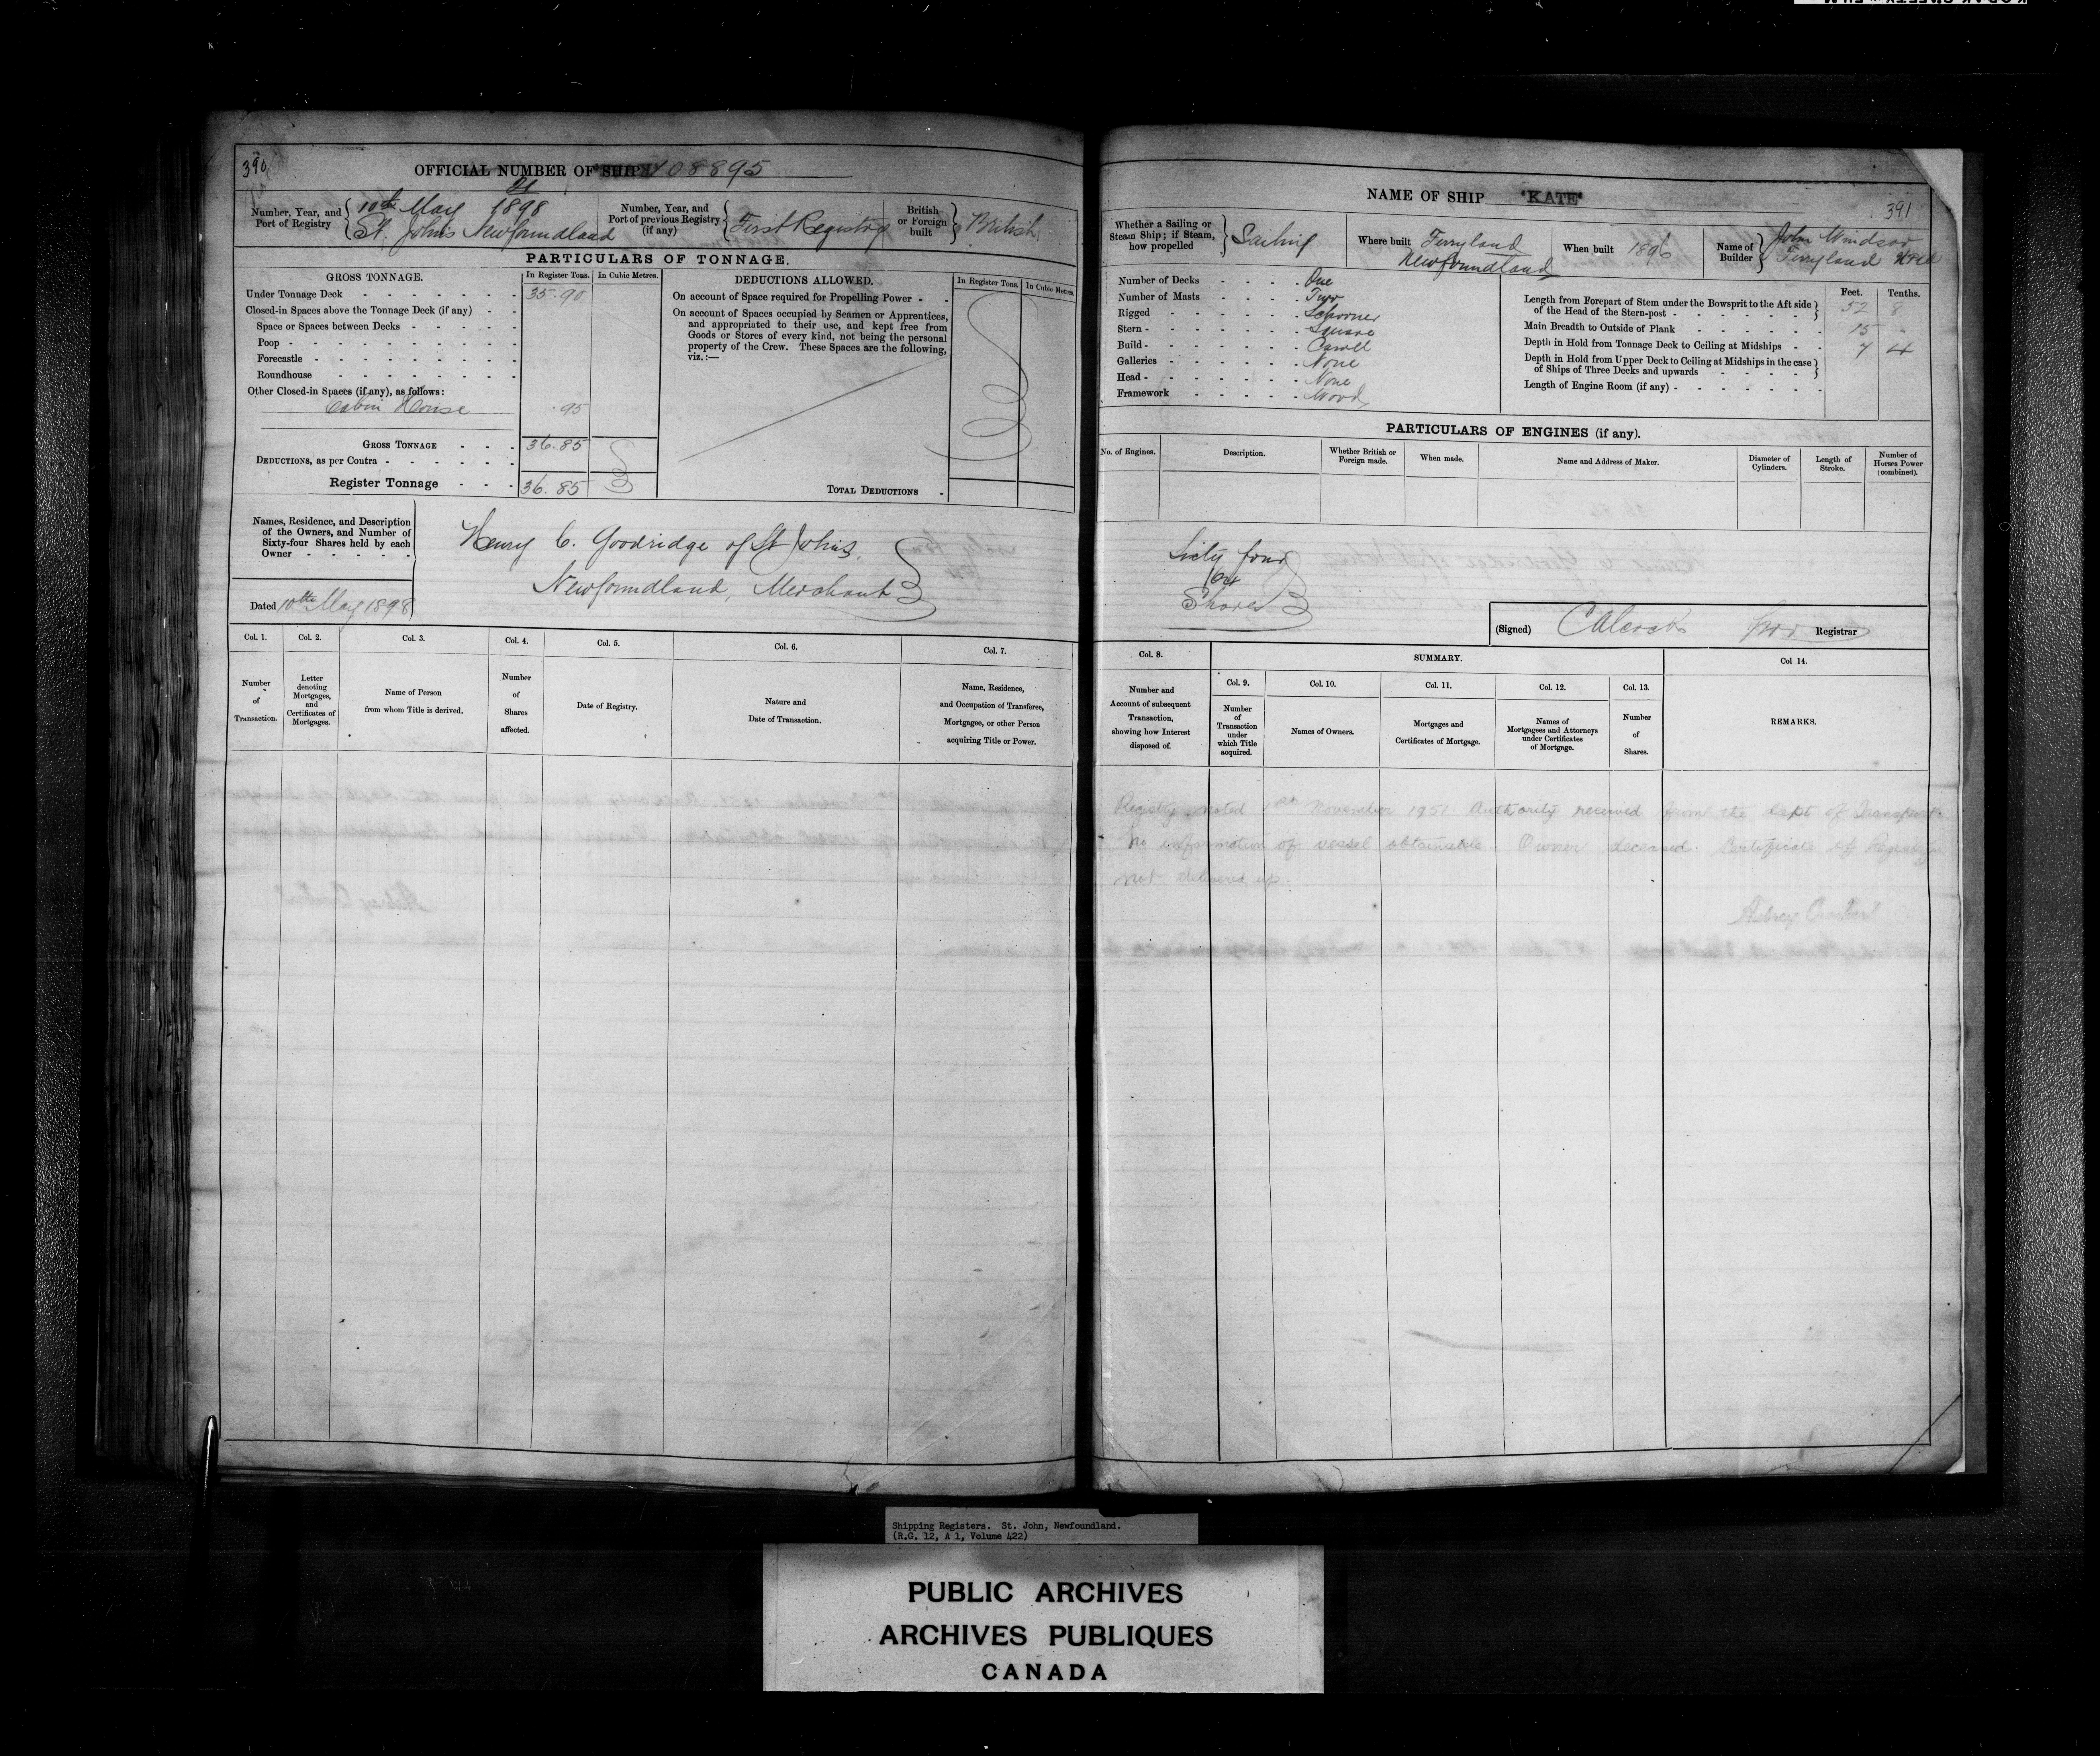 390
OFFICIAL NUMBER OF SHIP 108895
Number, Year, and Port of Registry 21 10th May 1898 St. John's Newfoundland
Number, Year, and Port of previous Registry (if any) First Registry
British or Foreign built British
PARTICULARS OF TONNAGE.
GROSS TONNAGE. In Register Tons. In Cubic Metres.
Under Tonnage Deck 35.90
Closed-in Spaces above the Tonnage Deck (if any)
Space or Spaces between Decks
Poop
Forecastle
Roundhouse
Other Closed-in Spaces (if any), as follows:
Cabin House .95
GROSS TONNAGE 36.85
DEDUCTIONS, as per Contra
Register Tonnage 36.85
DEDUCTIONS ALLOWED. In Register Tons. In Cubic Metres.
On account of Space required for Propelling Power
On account of Spaces occupied by Seamen or Apprentices,
and appropriated to their use, and kept free from
Goods or Stores of every kind, not being the personal
property of the Crew. These Spaces are the following,
viz.:—
TOTAL DEDUCTIONS
Names, Residence, and Description
of the Owners, and Number of
Sixty-four Shares held by each
Owner
Henry C. Goodridge of St John's,
Newfoundland, Merchant
Dated 10th May 1898
Col. 1. Number of Transaction.
Col. 2. Letter denoting Mortgages, and Certificates of Mortgages.
Col. 3. Name of Person from whom Title is derived.
Col. 4. Number of Shares affected.
Col. 5. Date of Registry.
Col. 6. Nature and Date of Transaction.
Col. 7. Name, Residence, and Occupation of Transferee, Mortgagee, or other Person acquiring Title or Power.
NAME OF SHIP "KATE"
391
Whether a Sailing or Steam Ship; if Steam, how propelled Sailing
Where built Ferryland Newfoundland
When built 1896
Name of Builder John Windsor Ferryland Nfld
Number of Decks One
Number of Masts Two
Rigged Schooner
Stern Square
Build Carvel
Galleries None
Head None
Framework Wood
Feet. Tenths.
Length from Forepart of Stem under the Bowsprit to the Aft side of the Head of the Stern-post 52 8
Main Breadth to Outside of Plank 15 -
Depth in Hold from Tonnage Deck to Ceiling at Midships 7 4
Depth in Hold from Upper Deck to Ceiling at Midships in the case of Ships of Three Decks and upwards
Length of Engine Room (if any)
PARTICULARS OF ENGINES (if any).
No. of Engines. Description. Whether British or Foreign made. When made. Name and Address of Maker. Diameter of Cylinders. Length of Stroke. Number of Horses Power (combined).
Sixty four
64
Shares
(Signed) Registrar
Col. 8. Number and Account of subsequent Transaction, showing how Interest disposed of.
SUMMARY.
Col. 9. Number of Transaction under which Title acquired.
Col. 10. Names of Owners.
Col. 11. Mortgages and Certificates of Mortgage.
Col. 12. Names of Mortgagees and Attorneys under Certificates of Mortgage.
Col. 13. Number of Shares.
Col 14. REMARKS.
Registry noted 1st November 1951. Authority received from the Dept of Transport.
No information of vessel obtainable. Owner deceased. Certificate of Registry
not delivered up.
Aubrey
Shipping Registers. St. John, Newfoundland.
(R.G. 12, A 1, Volume 422)
PUBLIC ARCHIVES
ARCHIVES PUBLIQUES
CANADA